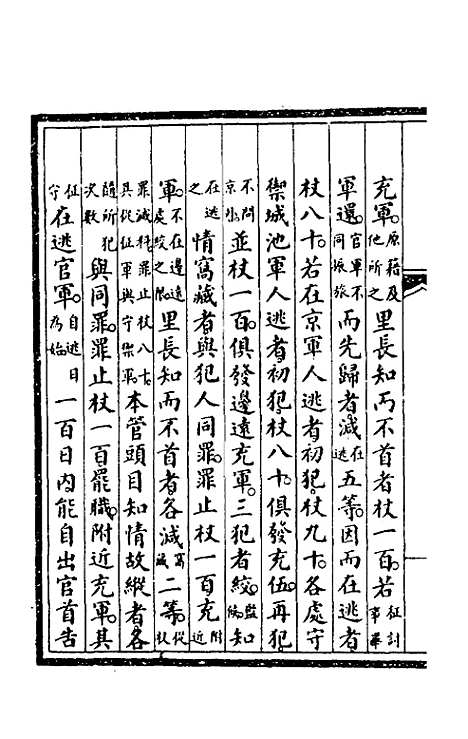 充軍。原籍及他所之里長知而不首者杖一百。若征討事畢
軍還。官軍不同振旅而先歸者減在逃五等。因而在逃者
杖八十。若在京軍人逃者初犯杖九十。各處守
禦城池軍人逃者初犯杖八十。俱發充伍。再犯
不問京外並杖一百。俱發邊遠充軍。三犯者絞。監候知
在逃之情窩藏者與犯人同罪。罪止杖一百充附近
軍。不在邊遠處絞之限。里長知而不首者各減窩藏二等。從杖
罪減科罪止杖八十。具從征軍與守禦軍。本管頭目知情故縱者各
隨所犯次數與同罪。罪止杖一百罷職。附近充軍。其
征守在逃官軍。自逃日為始一百日內能自出官首告